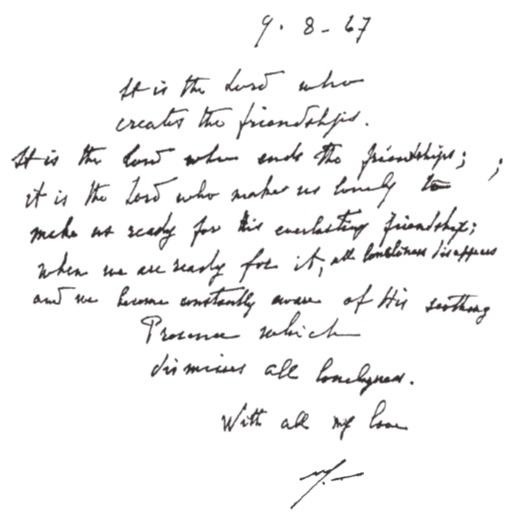 9. 8 - 67
It is the Lord who
creates the friendships.
It is the Lord who ends the friendships; ;
it is the Lord who makes us lonely to
make us ready for His everlasting friendship;
when we are ready for it, all loneliness disappears
and we become constantly aware of His soothing
Presence which
dismisses all lonelyness.
With all my love
M.-